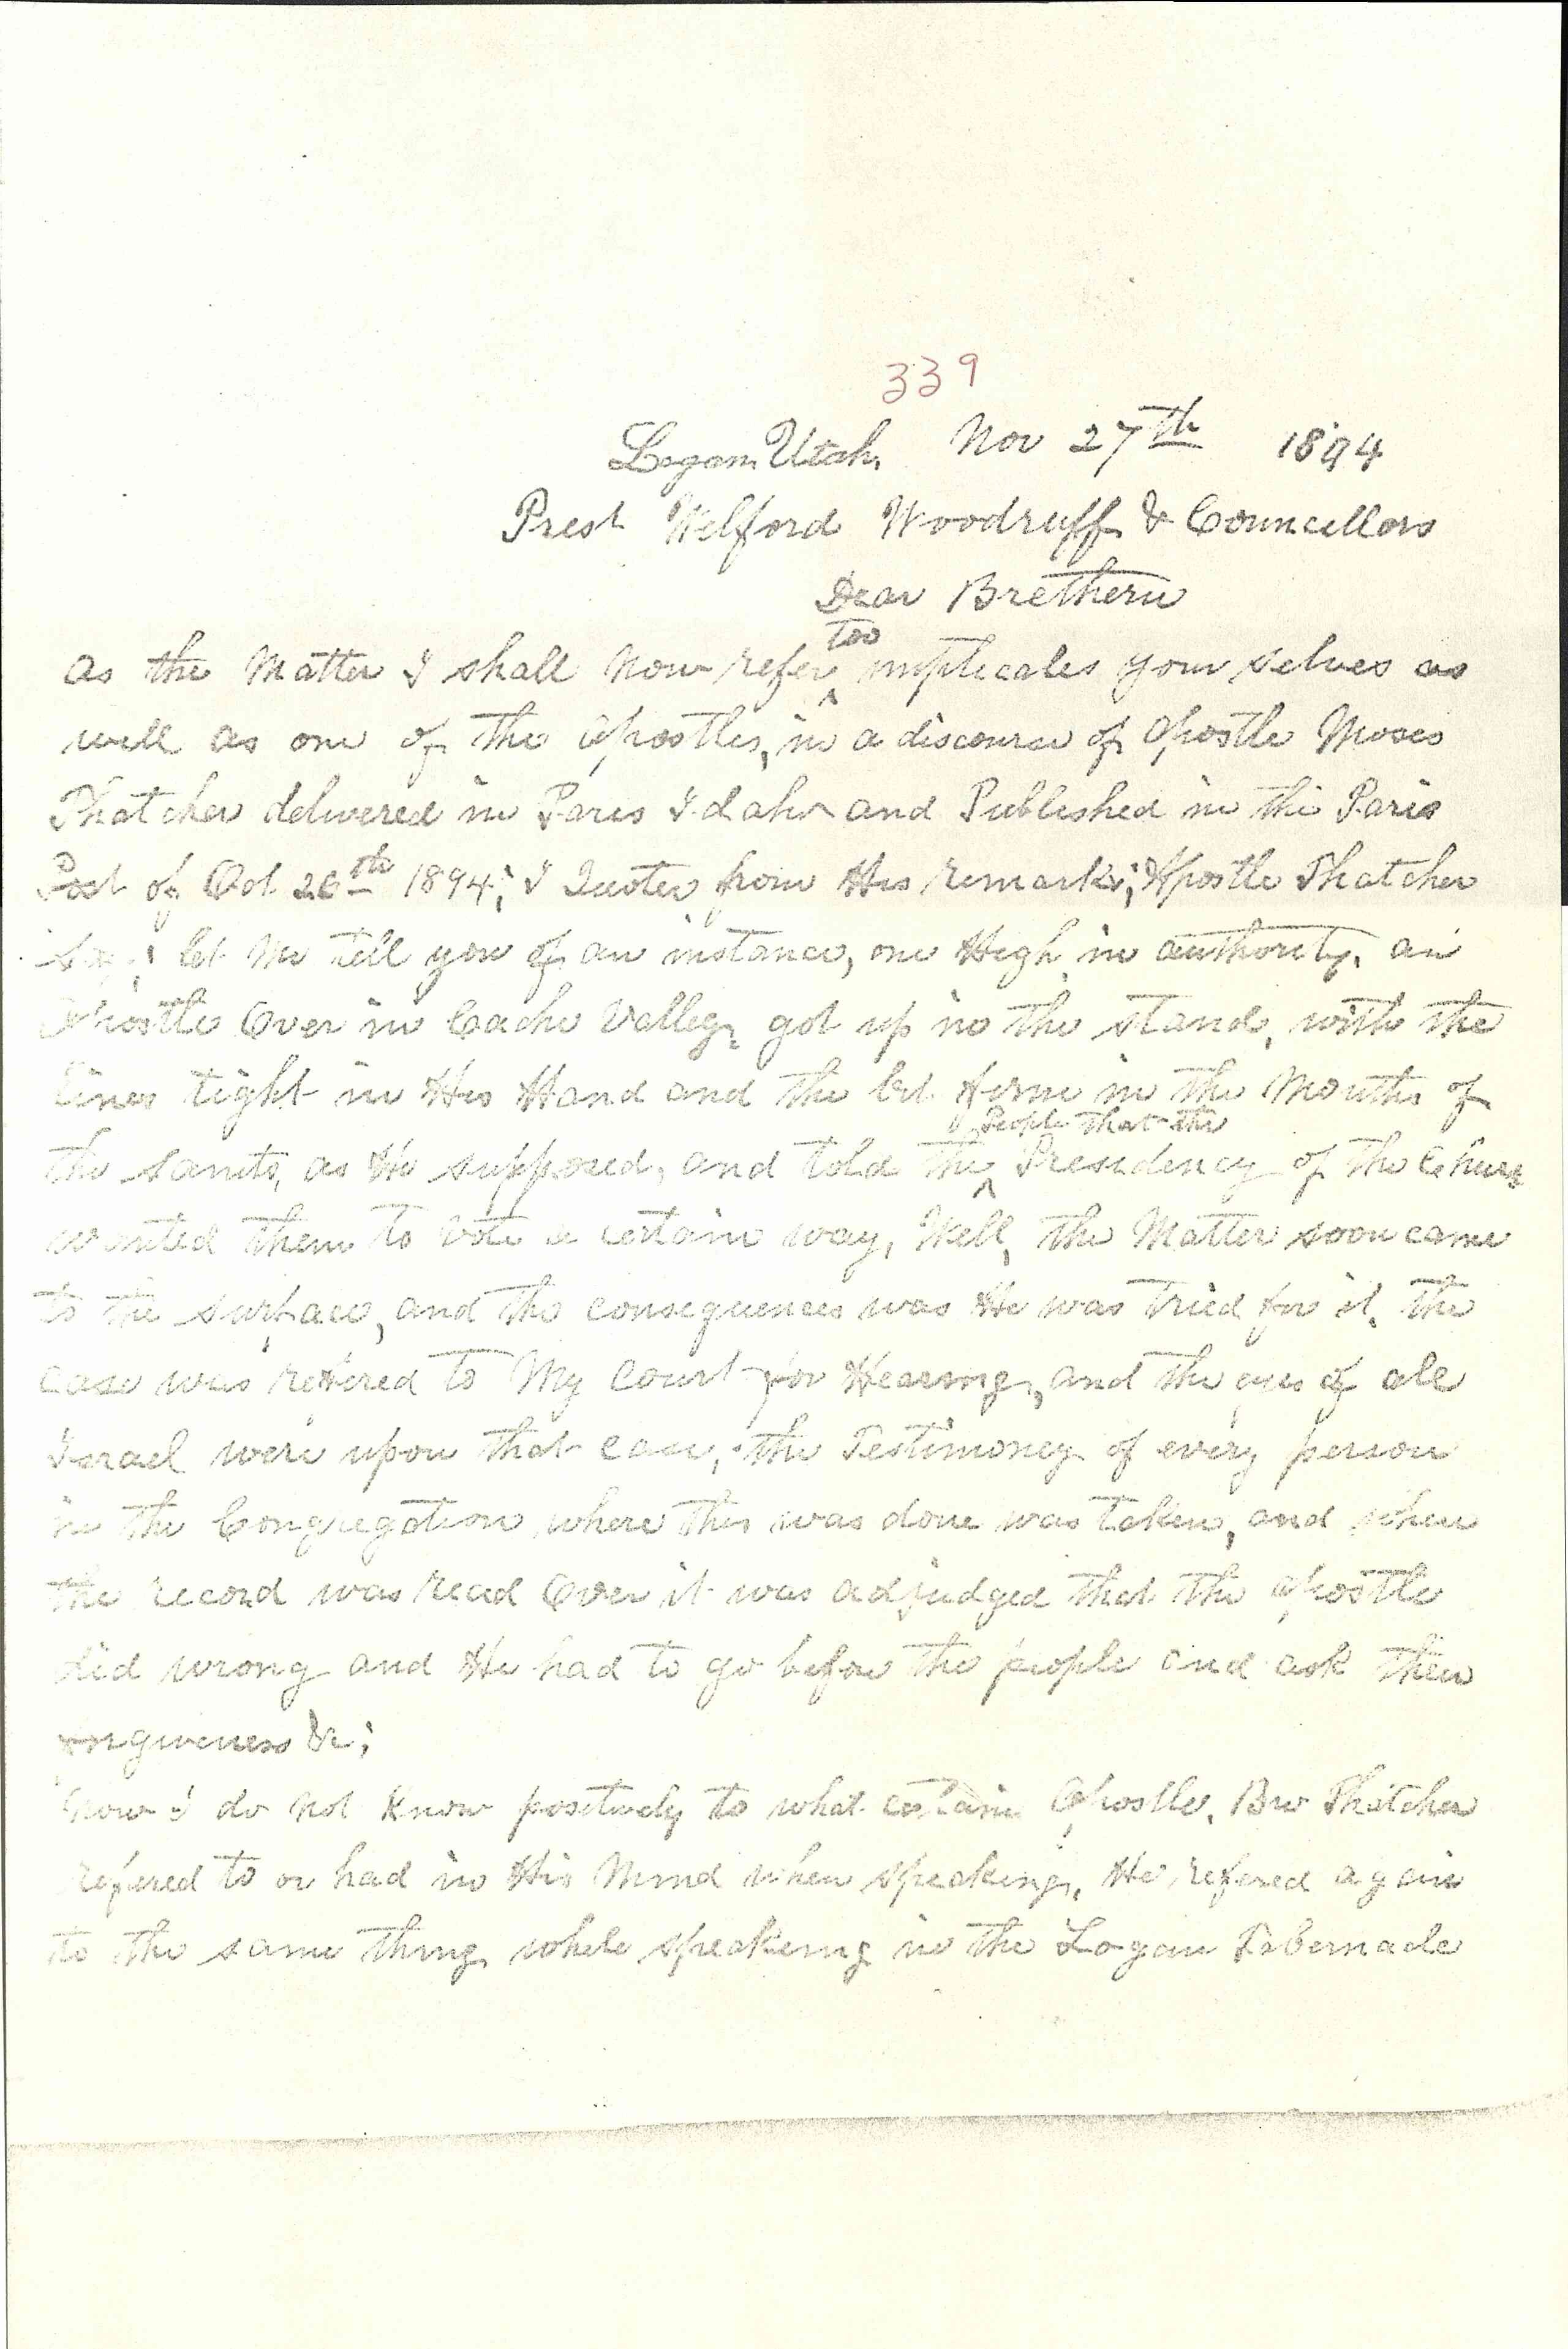 339
Logan Utah, Nov 27th 1894
Prest Wilford Woodruff & Councellors
Dear Brethern
too
As the Matter I shall Now refer ^ implicates your selves as
well as one of the Apostles, in a discourse of Apostle Moses
Thatcher delivered in Paris Idaho and Published in the Paris
Post of Oct 26th 1894; I Quote from His remarks; Apostle Thatcher
let Me tell you of an instance, one High in authority, an
Apostle Over in Cache Valley, got up in the stand, with the
lines tight in His Hand and the bit firm in the Mouths of
People that the
the saints, as He supposed, and told the ^ Presidency of the Church
wanted them to vote a certain way, Well, the Matter soon came
to the surface, and the consequences was He was tried for it, the
case was refered to My Court for Hearing, and the eyes of all
Israel were upon that case, the Testimoney of every person
in the Congregation where this was done was taken, and when
the record was read Over it was adjudged that the Apostle
did wrong and He had to go before the people and ask their
forgiveness &c;
Now I do not Know positively to what certain Apostle, Bro Thatcher
refered to or had in His Mind when speaking, He refered again
to the same thing while speaking in the Logan Tabernacle